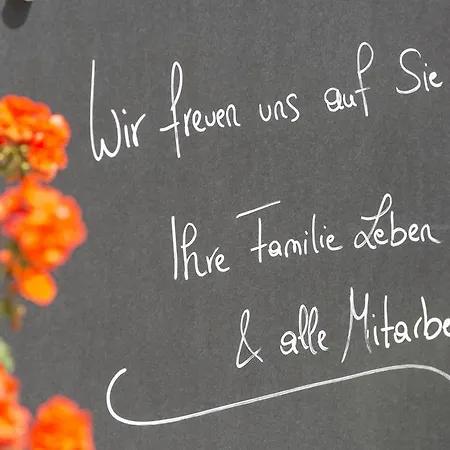 Wir freuen uns auf Sie
Ihre Familie Leben
& alle Mitarbe